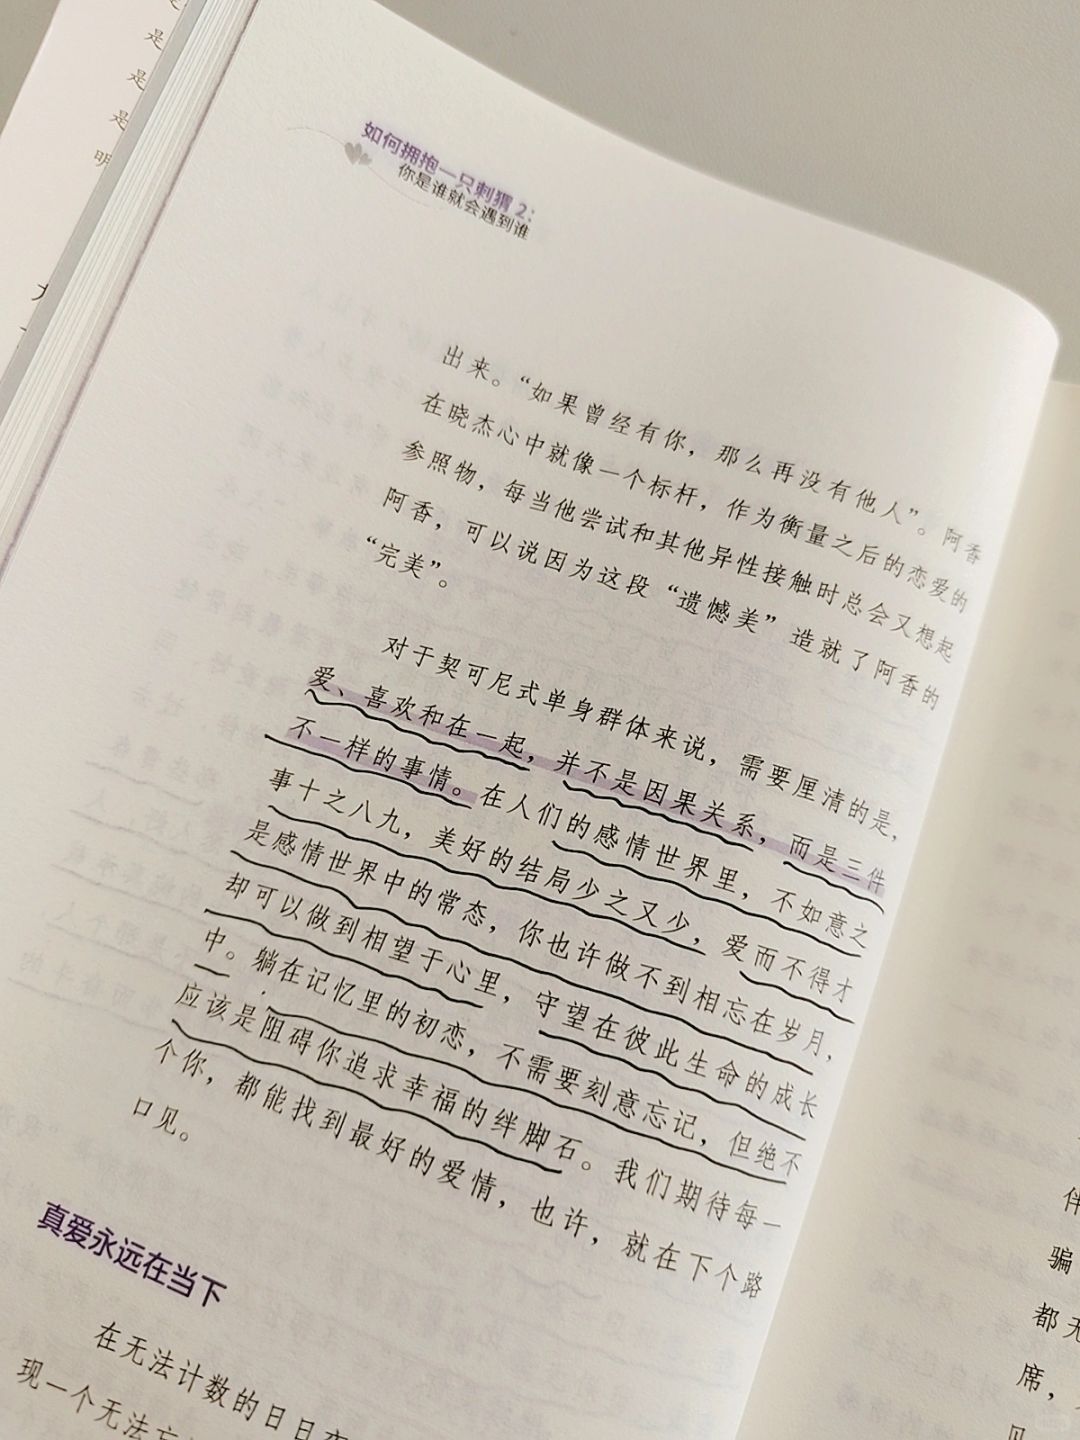 如何拥抱一只刺猬2：
你是谁就会遇到谁
出来。“如果曾经有你，那么再没有他人”。阿香
在晓杰心中就像一个标杆，作为衡量之后的恋爱的
参照物，每当他尝试和其他异性接触时总会又想起
阿香，可以说因为这段“遗憾美”造就了阿香的
“完美”。
对于契可尼式单身群体来说，需要厘清的是，
爱、喜欢和在一起，并不是因果关系，而是三件
不一样的事情。在人们的感情世界里，不如意之
事十之八九，美好的结局少之又少，爱而不得才
是感情世界中的常态，你也许做不到相忘在岁月，
却可以做到相望于心里，守望在彼此生命的成长
中。躺在记忆里的初恋，不需要刻意忘记，但绝不
应该是阻碍你追求幸福的绊脚石。我们期待每一
个你，都能找到最好的爱情，也许，就在下个路
口见。
真爱永远在当下
在无法计数的日日
现一个无法
是
是
是
明
伴
骗
都
席，